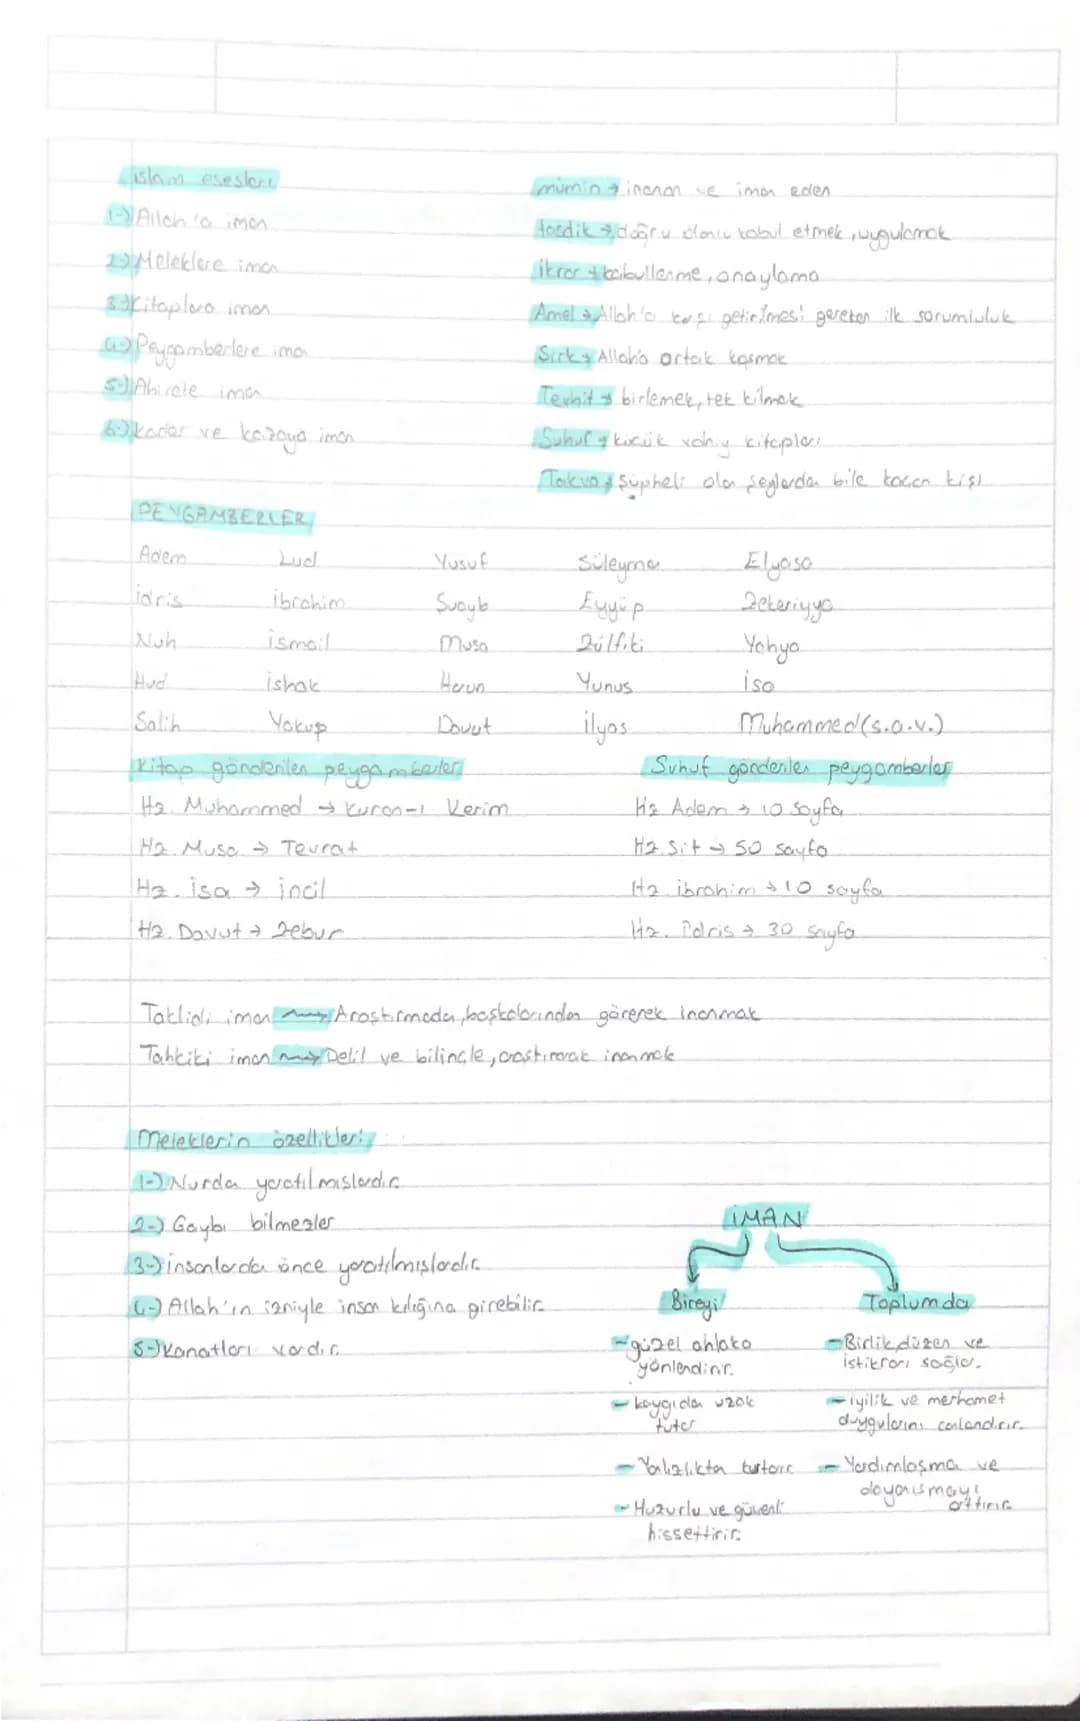 islam esasları
1-) Allah'a iman
2-) Meleklere iman
3-) Kitaplara iman
4-) Peygamberlere iman
5-) Ahirete iman
6-) kader ve kazaya iman
mümin → inanan ve iman eden
tasdik → doğru olanı kabul etmek, uygulamak
ikrar → kabullenme, onaylama
Amel → Allah'a karşı getirilmesi gereken ilk sorumluluk
Şirk → Allah'a ortak koşmak
Tevhit → birlemek, tek kılmak
Suhuf → küçük vahiy kitapları
Takva → Şüpheli olan şeylerden bile kaçan kişi
PEYGAMBERLER
Adem Lud Yusuf Süleyman Elyasa
idris ibrahim Şuayb Eyyüp Zekeriyya
Nuh ismail Musa Zülfiki Yahya
Hud ishak Harun Yunus isa
Salih Yakup Davut ilyas Muhammed (s.a.v.)
Kitap gönderilen peygamberler
Hz. Muhammed → Kuran-ı Kerim
Hz. Musa → Tevrat
Hz. isa → incil
Hz. Davut → Zebur
Suhuf gönderilen peygamberler
Hz Adem → 10 Sayfa
Hz. Şit → 50 sayfa
Hz. ibrahim → 10 sayfa
Hz. idris → 30 Sayfa
Taklidi iman → Araştırmadan, başkalarından görerek inanmak
Tahkiki iman → Delil ve bilinçle, araştırarak inanmak
Meleklerin özellikleri;
1-) Nurdan yaratılmışlardır.
2-) Gaybı bilmezler
3-) insanlardan önce yaratılmışlardır.
4-) Allah'ın izniyle insan kılığına girebilir.
5-) Kanatları vardır.
iMAN
Bireyi
- güzel ahlaka
yönlendirir.
- kaygıdan uzak
tutar
- Yalnızlıktan kurtarır
- Huzurlu ve güvenli
hissettirir.
Toplumda
- Birlik, düzen ve
istikrarı sağlar.
- iyilik ve merhamet
duygularını canlandırır.
- Yardımlaşma ve
dayanışmayı
arttırır.